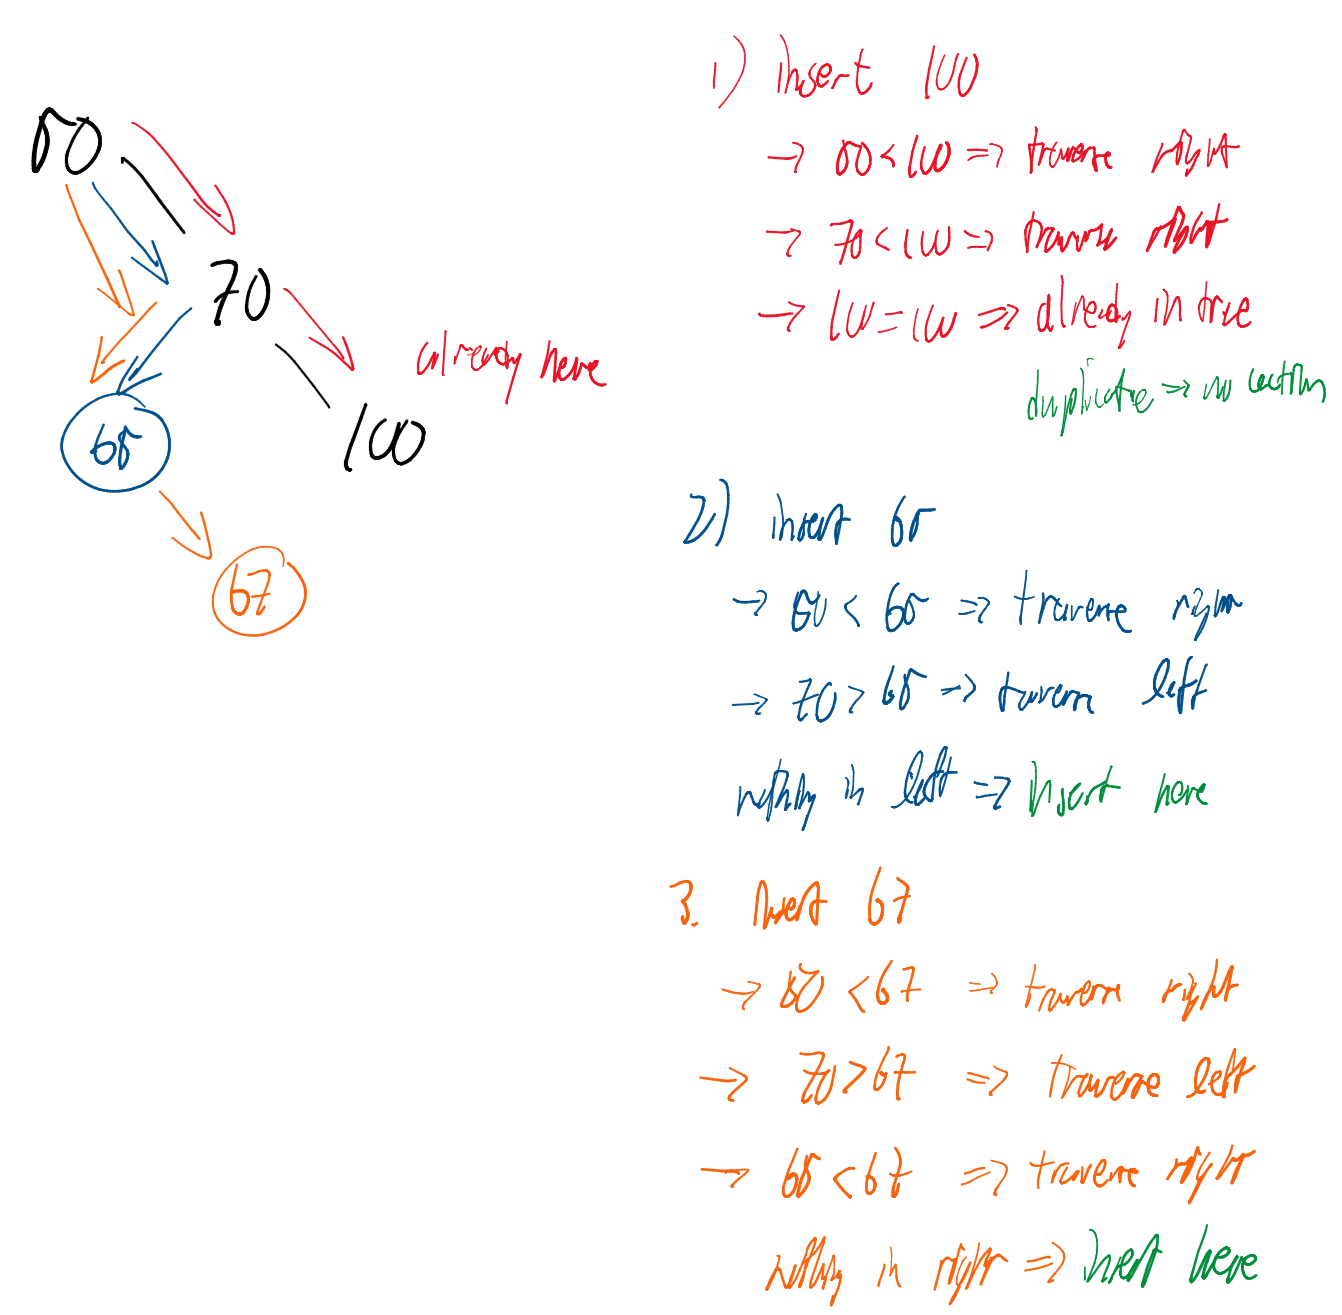 50
70
already here
100
65
67
1) insert 100
→ 50 < 100 => traverse right
→ 70 < 100 => traverse right
→ 100 = 100 => already in tree
duplicate => no action
2) insert 65
→ 50 < 65 => traverse right
→ 70 > 65 => traverse left
nothing in left => insert here
3. Insert 67
→ 50 < 67 => traverse right
→ 70 > 67 => traverse left
→ 65 < 67 => traverse right
nothing in right => insert here